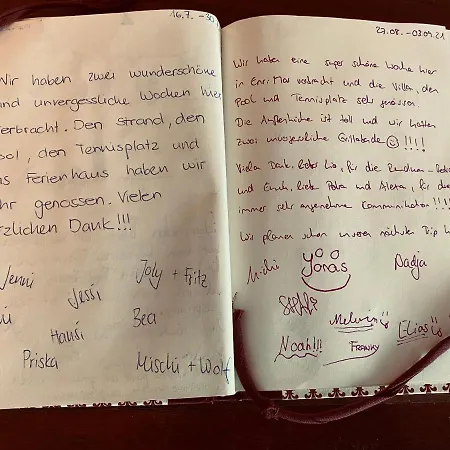 16.7. - 30
Wir haben zwei wunderschöne
und unvergessliche Wochen hier
verbracht. Den Strand, den
ool, den Tennisplatz und
as Ferienhaus haben wir
hr genossen. Vielen
rzlichen Dank!!!
Jenni
Joly + Fritz
Jessi
Bea
Hausi
Priska
Mischu + Wolf
27.08. - 03.09.21
Wir haben eine super schöne Woche hier
in verbracht und die Villa, den
Pool und Tennisplatz sehr genossen.
Die Außenküche ist toll und wir hatten
zwei unvergessliche Grillabende ☺ !!!!
Vielen Dank, lieber für die
und Euch, liebe Petra und für die
immer sehr angenehme Kommunikation !!!!
Wir planen schon unseren nächsten Trip h
Michi
Yoras
Nadja
Melvin
Elias
Noah!!!
FRANKY